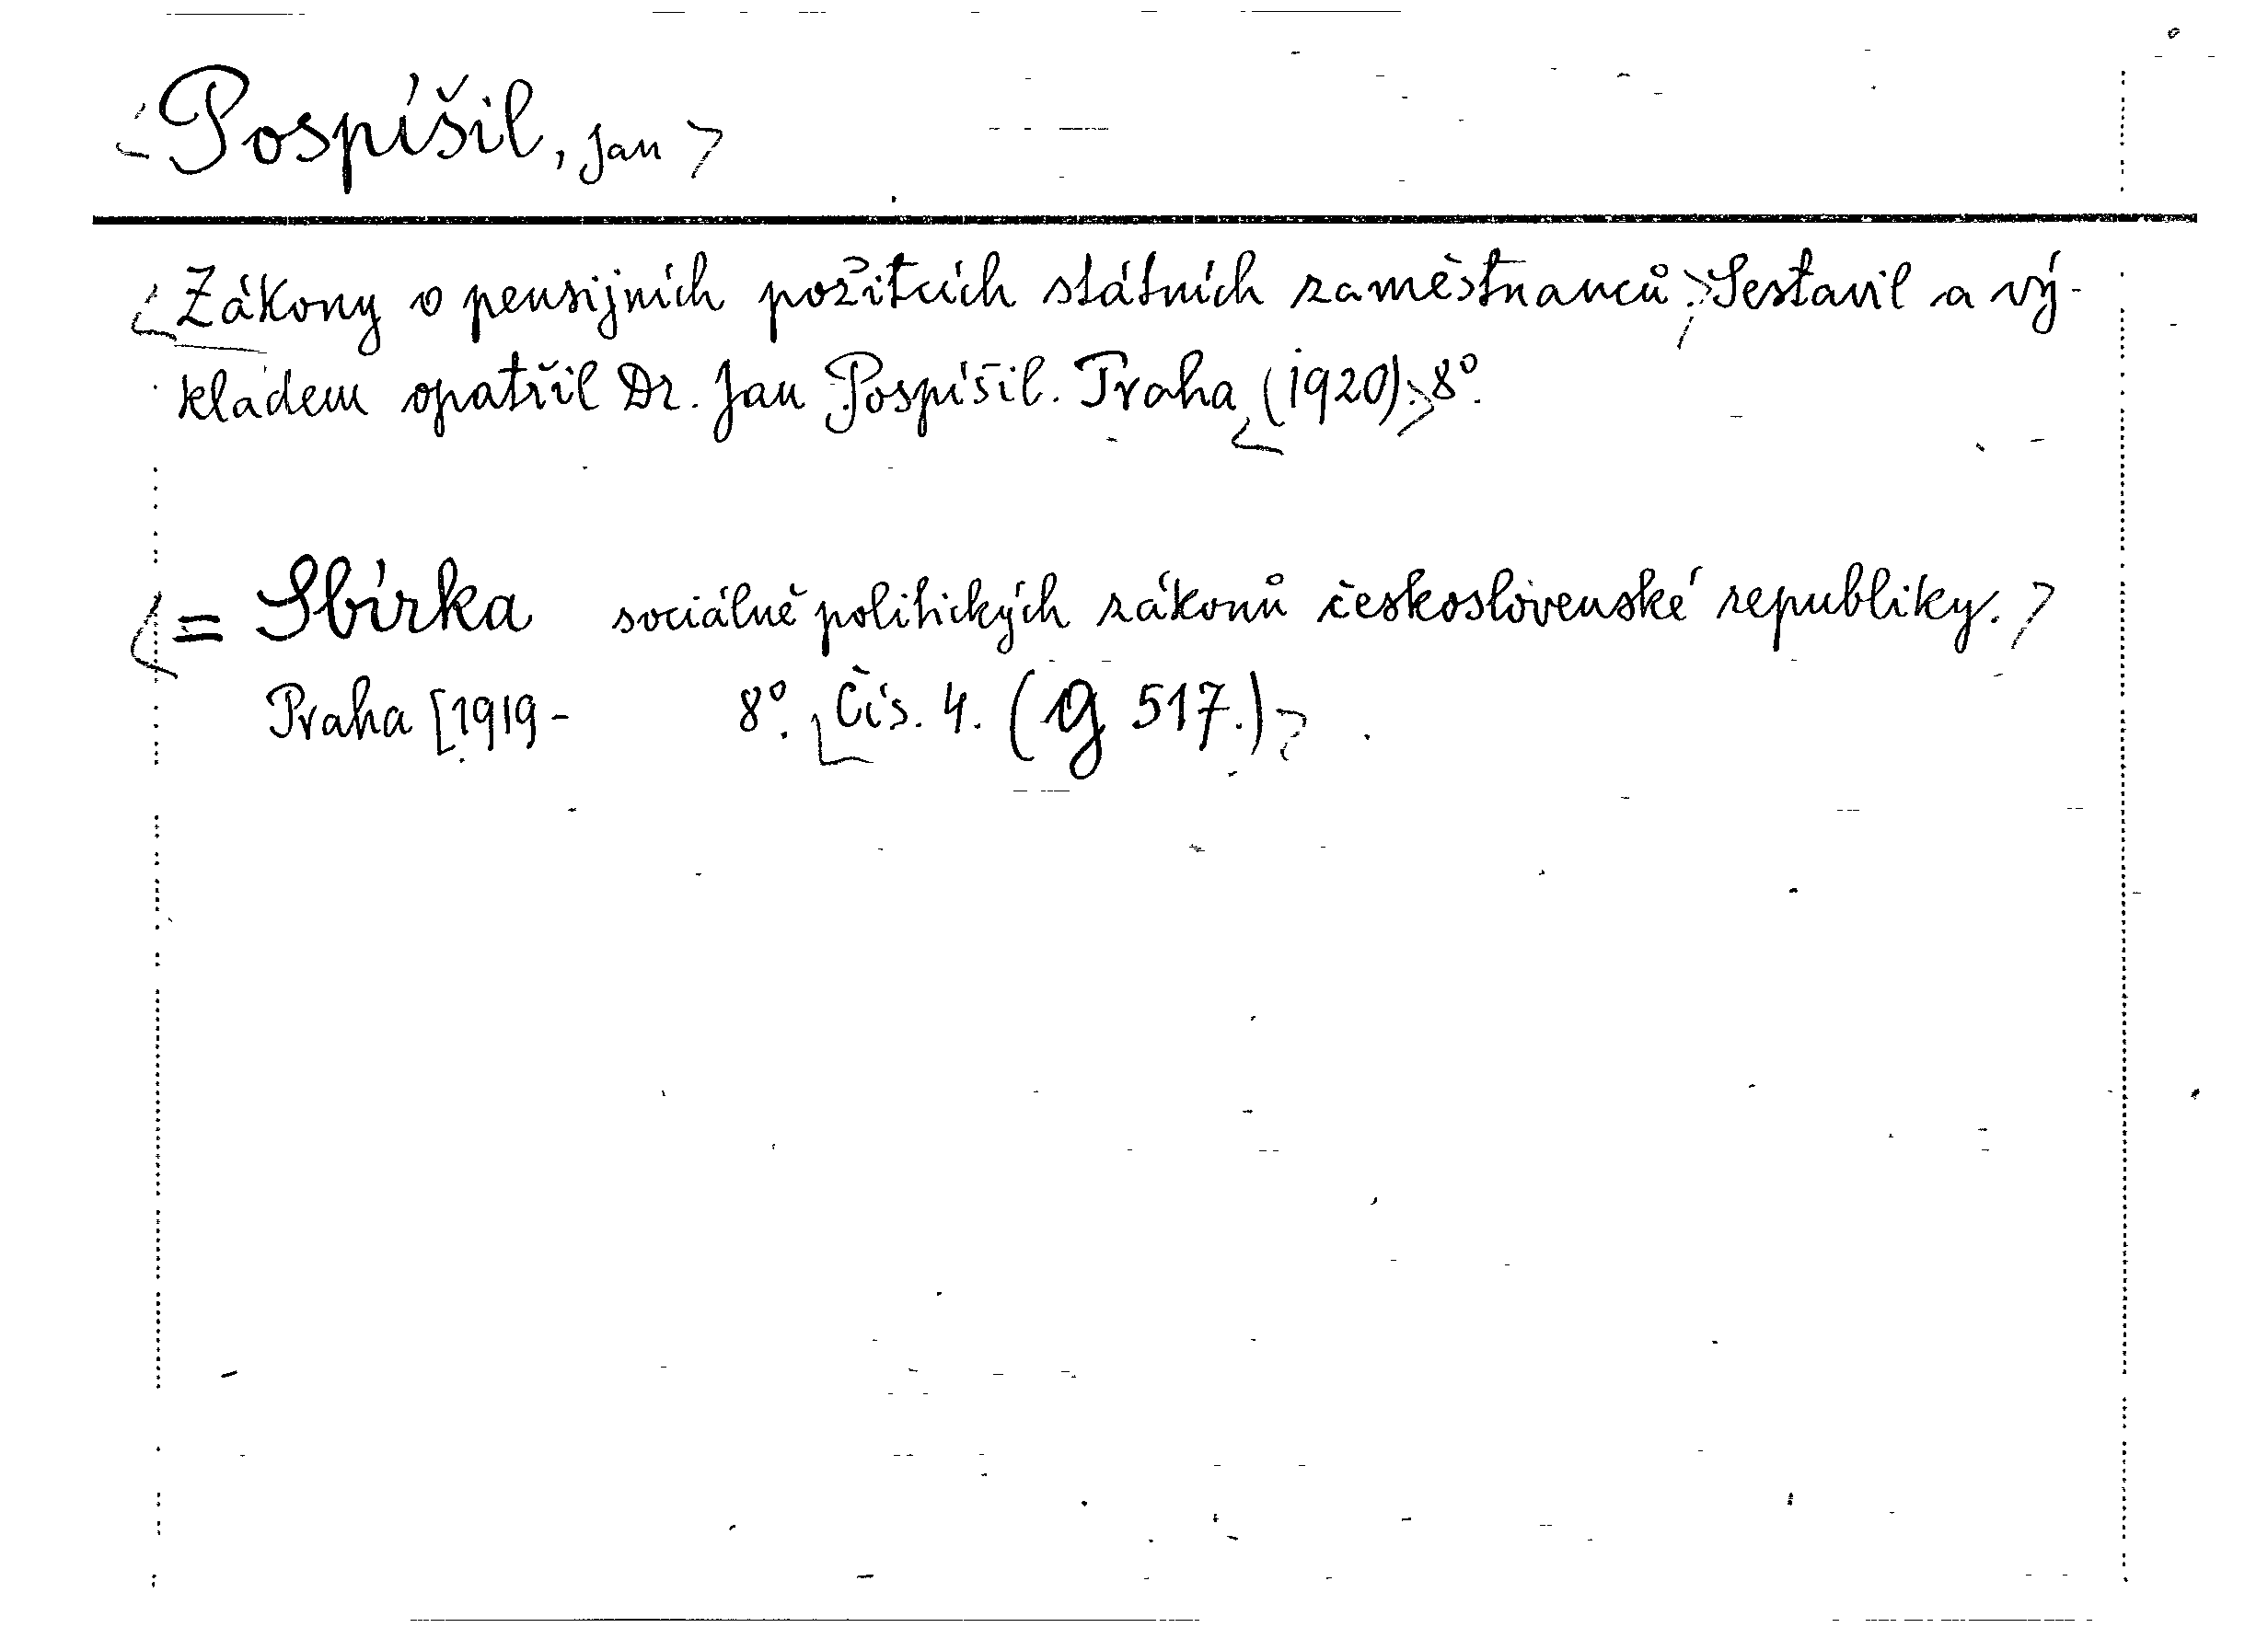 <Pospíšil, Jan>
<Zákony o pensijních požitcích státních zaměstnanců.> Sestavil a vý-
kladem opatřil Dr. Jan Pospíšil. Praha <(1920).> 8°.
<= Sbírka sociálně politických zákonů československé republiky.>
Praha [1919- 8°. <Čís. 4. (g 517.)>